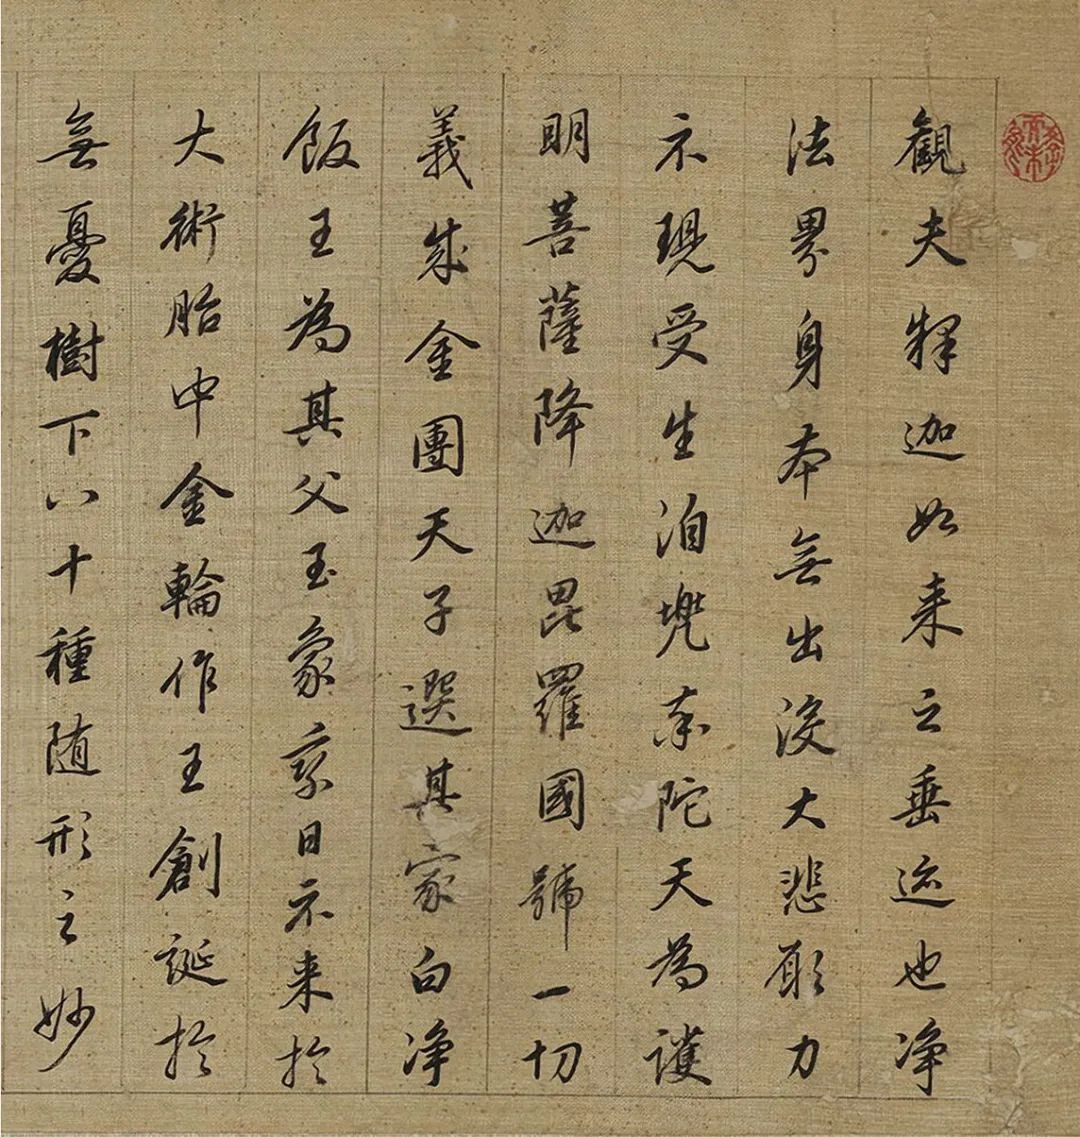 觀夫釋迦如来之垂迹也净
法界身本無出没大悲願力
示現受生洎兜率陀天為護
明菩薩降迦毘羅國號一切
義成金團天子選其家白净
飯王為其父玉象乘日示来於
大術胎中金輪作王創誕於
無憂樹下八十種随形之妙